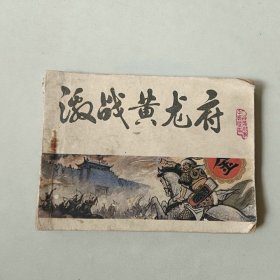 激战黄龙府
金